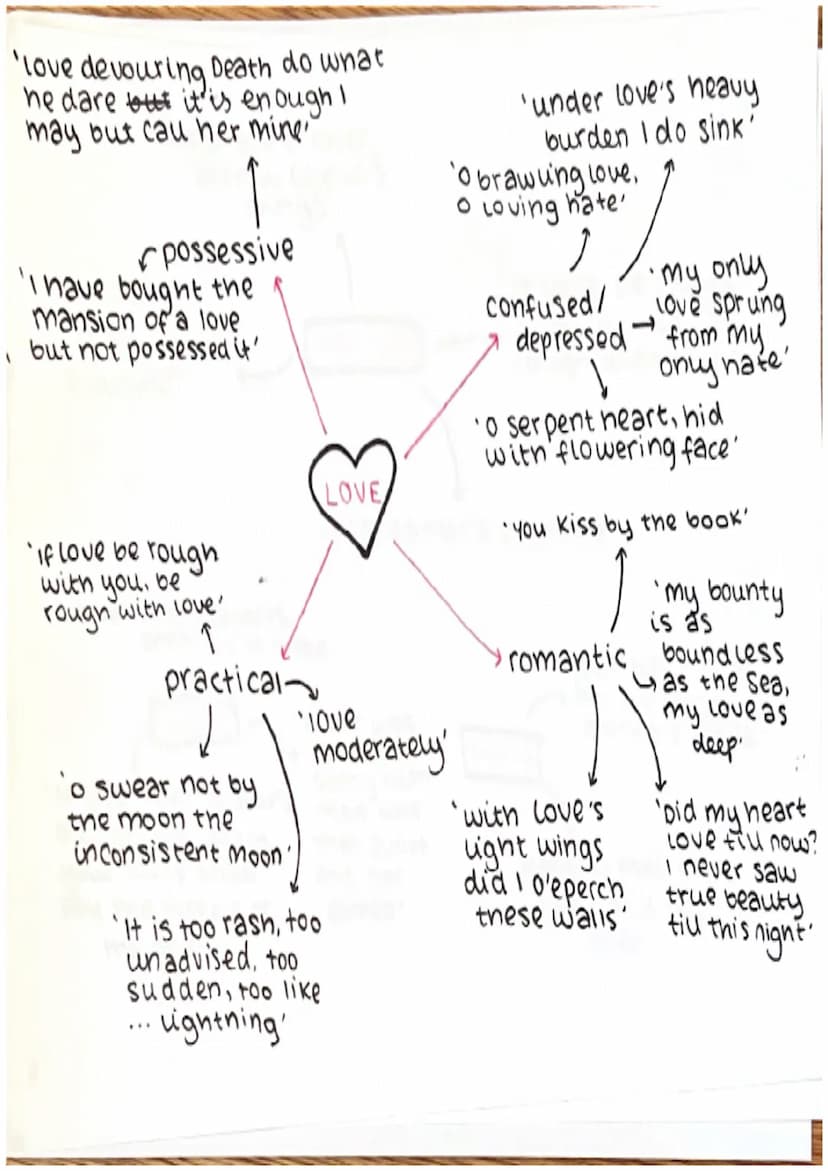 'Love devouring Death do what
he dare but it is enough I
may but call her mine'
possessive
'I have bought the
mansion of a love
but not possessed it'
'under love's heavy
burden I do sink'
'O brawling love,
O loving hate'
confused/
depressed
'my only
love sprung
from my
only hate'
'O serpent heart, hid
with flowering face'
LOVE
'If love be rough
with you, be
rough with love'
practical
'love
moderately'
'O swear not by
the moon the
inconsistent moon'
'It is too rash, too
unadvised, too
sudden, too like
... lightning'
'you kiss by the book'
romantic
'my bounty
is as
boundless
as the sea,
my love as
deep'
'with love's
light wings
did I o'eperch
these walls'
'Did my heart
love till now?
I never saw
true beauty
till this night'